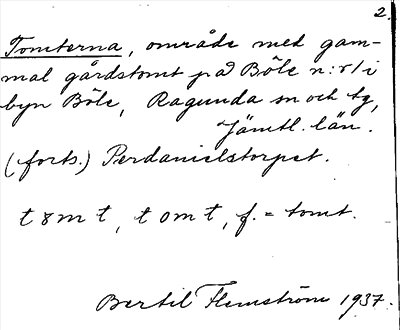 2.
Tomterna, område med gam-
mal gårdstomt på Böle n:r 1 i
byn Böle, Ragunda sn och tg,
Jämtl. län.
(forts.) Perdanielstorpet.
t8mt, tomt, f. = tomt.
Bertil Flemström 1937.